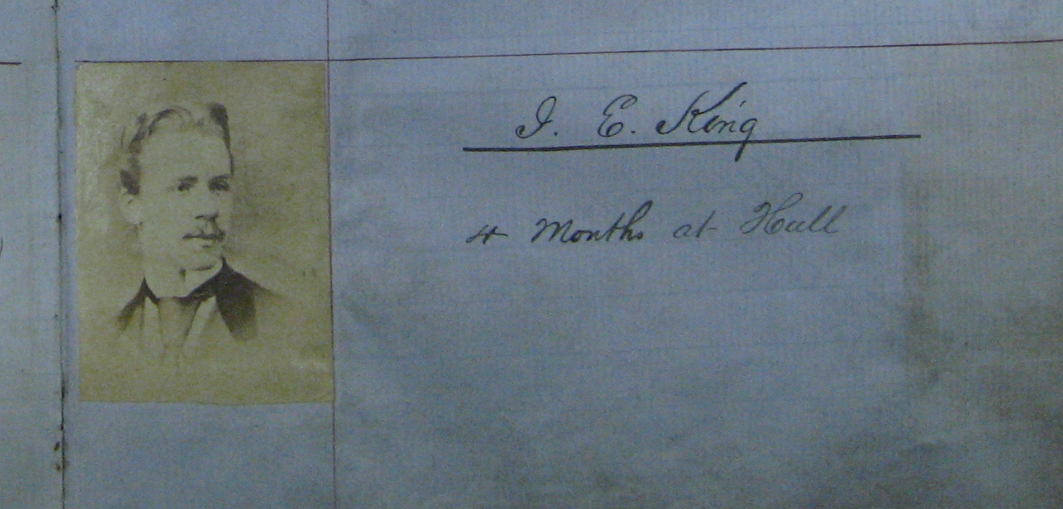 J. E. King
4 Months at Hull